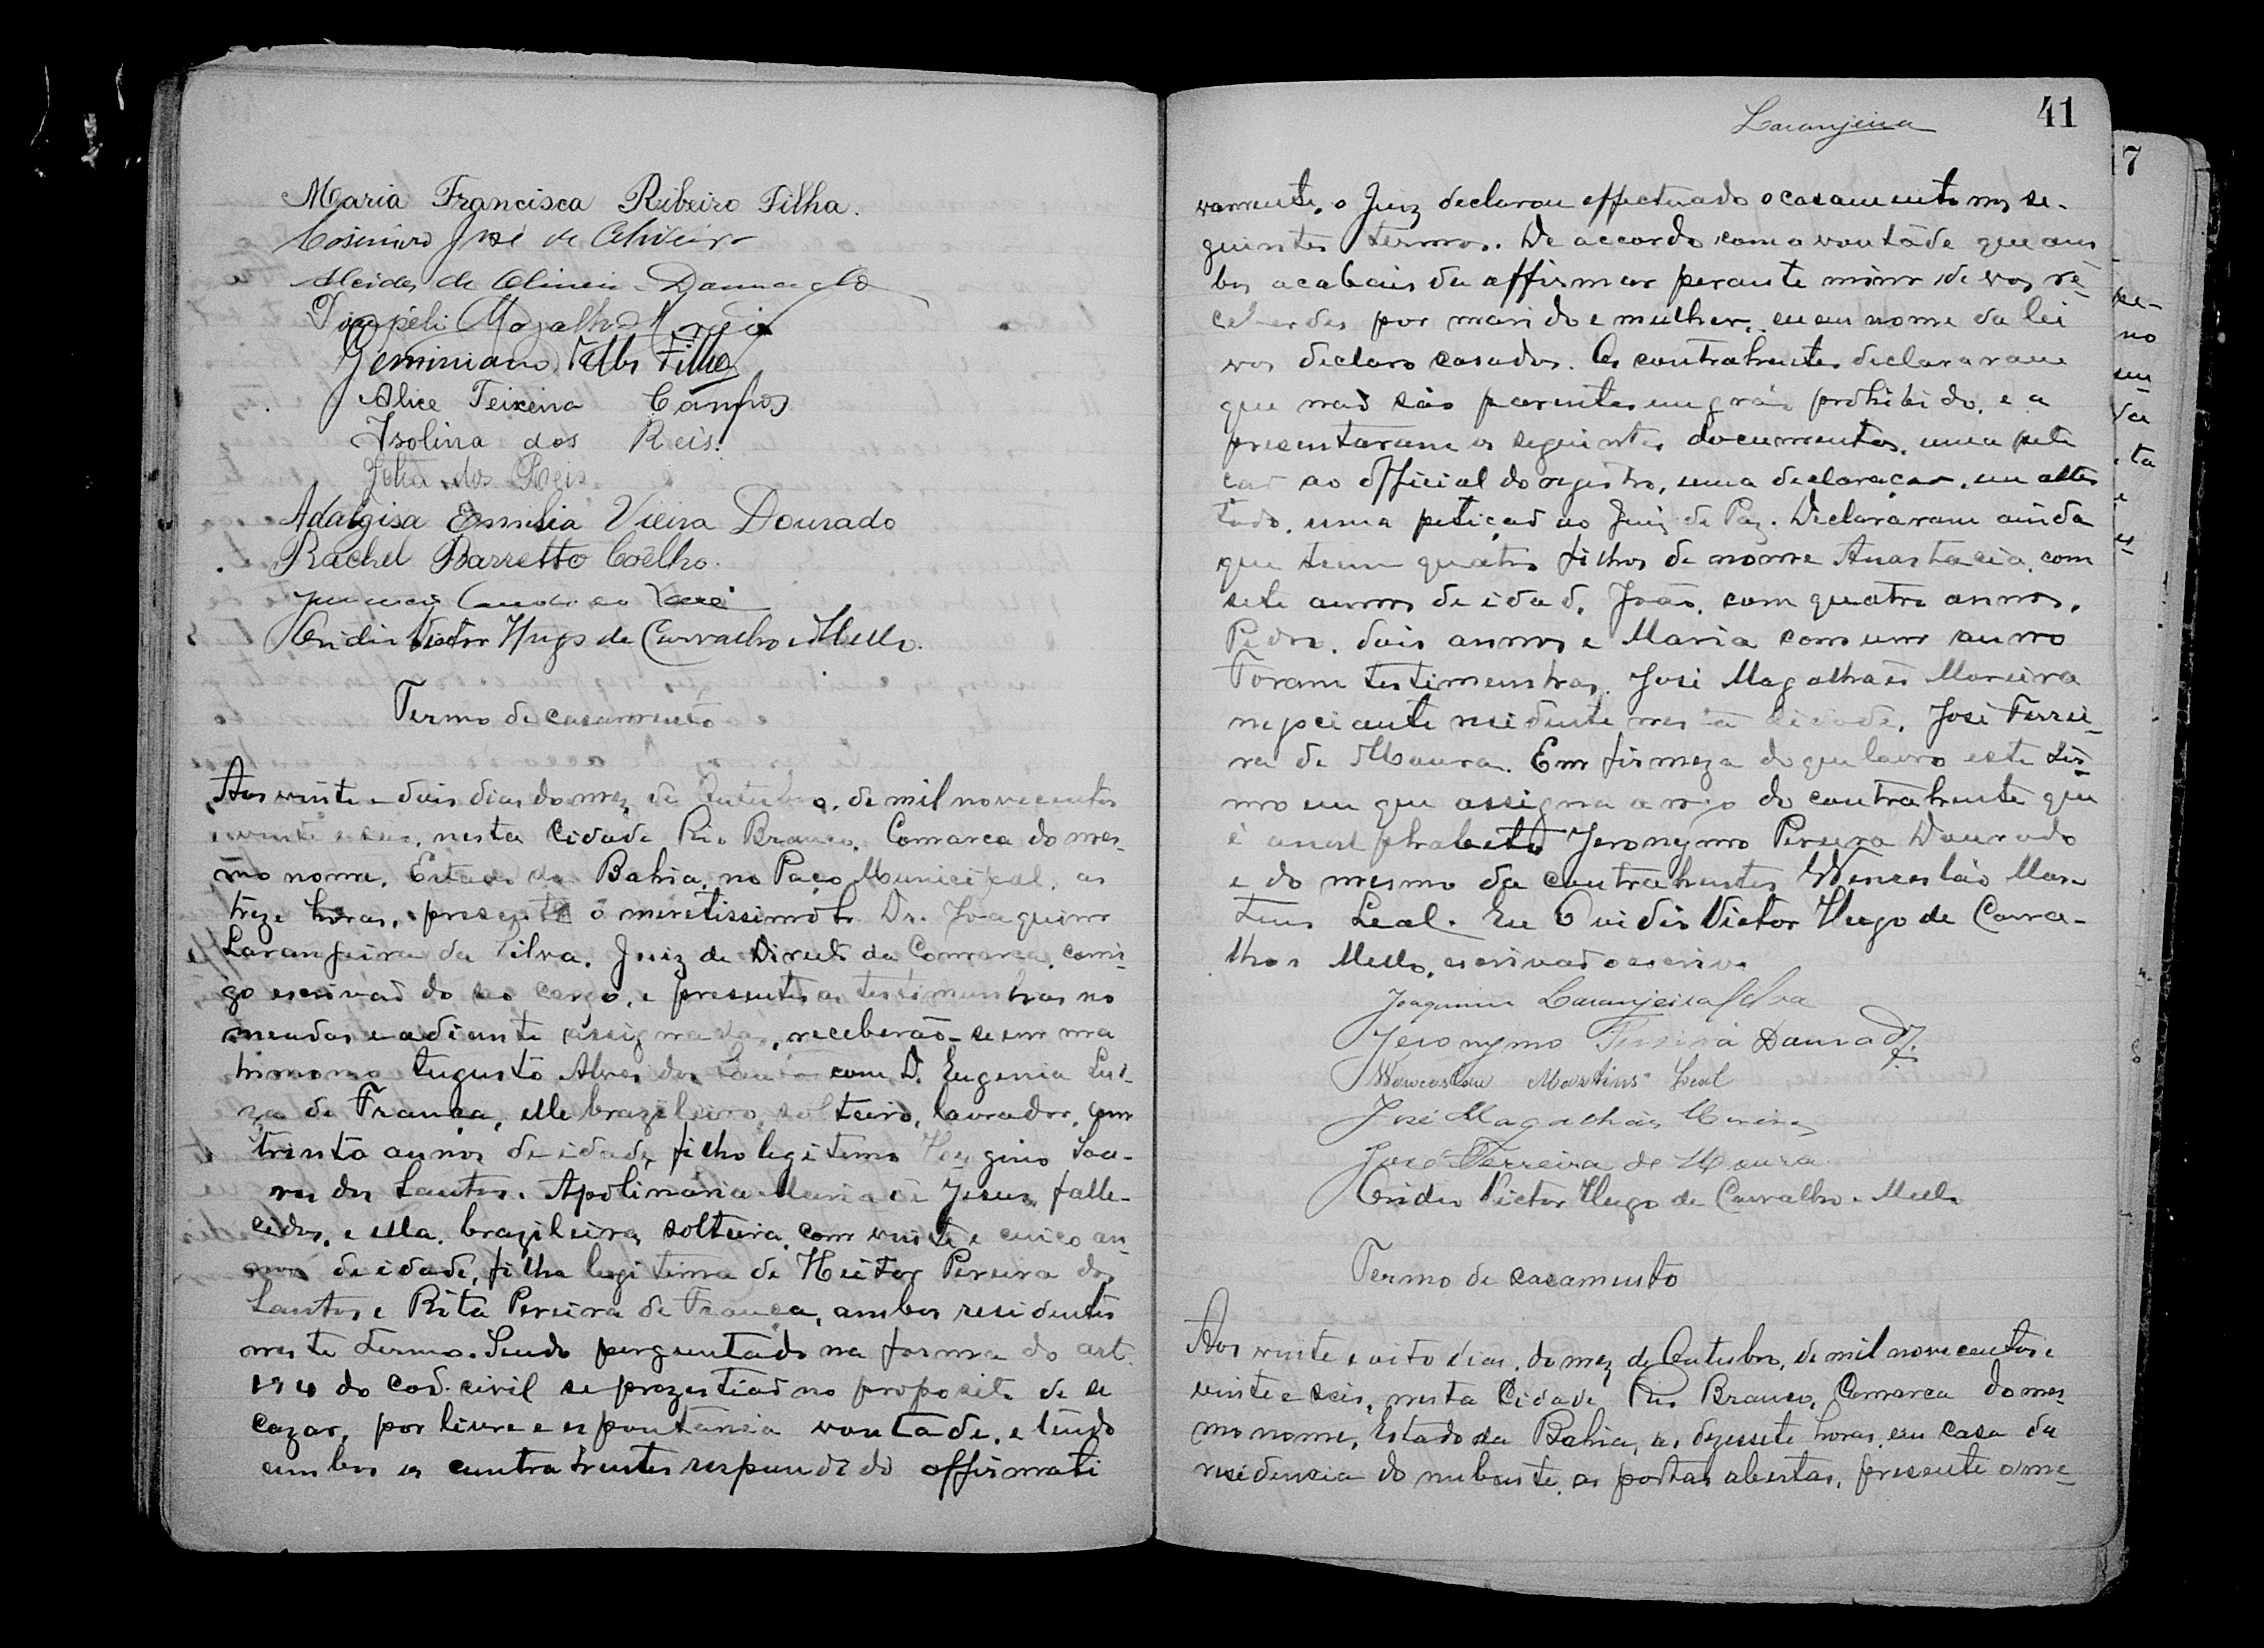 Maria Francisca Ribeiro Filha.
Casimiro José de Oliveira
Alcides de Oliveira Dourado
Magalhães
Geminiano Telles Filho
Alice Teixeira Campos
Isolina dos Reis.
dos Reis
Adalgisa Emilia Vieira Dourado
Rachel Barretto Coêlho.
Ovidio Victor Hugo de Carvalho e Mello.
Termo de casamento
Aos vinte e dois dias do mez de Outubro, de mil novecentos
e vinte e seis, nesta Cidade Rio Branco, Comarca do mes-
mo nome, Estado da Bahia, no Paço Municipal, as
treze horas, presente o meretissimo Dr. Joaquim
Laranjeira da Silva, Juiz de Direito da Comarca, comi-
go escrivão do seo cargo, e presentes as testimunhas no
meadas e adiante assignadas, receberão-se em ma
trimonio Augusto Alves dos Santos com D. Eugenia Lui-
za de França, elle brazileiro, solteiro, lavrador, com
trinta annos de idade, filho legitimo Hygino Soa-
res dos Santos. Apolinaria Maria de Jesus, falle-
cidos, e ella, brazileira, solteira, com vinte e cinco an-
nos de idade, filha legitima de Heitor Pereira dos
Santos e Rita Pereira de França, ambos residentes
neste termo. Sendo perguntado na forma do art.
194 do cod. civil se prezestião no proposito de se
cazar, por livre e espontania vontade, e tendo
ambos os contrahentes respondido affirmati
Laranjeira 41
vamente, o Juiz declarou effectuado o casamento nos se-
guintes termos. De accordo com a vontade que am
bos acabais de affirmar perante mim de vos re-
ceberdes por marido e mulher, eu em nome da lei
vos declaro casados. Os contrahentes declararam
que não são parentes em gráo prohibido, e a
presentaram os seguintes documentos, uma peti
ção ao official do registro, uma declaração, um attes
tado, uma petição ao Juiz de Paz. Declararam ainda
que teem quatro filhos de nome Anastacia, com
sete annos de idad, João, com quatro annos,
Pedro, dois annos e Maria com um anno
Foram testimunhas. José Magalhães Moreira
negociante residente nesta cidade, José Ferrei-
ra de Moura. Em firmeza do que lavro este ter-
mo em que assigna a rogo do contrahente que
é analphabeto Jeronymo Pereira Dourado
e do mesmo da contrahentes Wenceslão Mar
tins Leal. Eu Ovidio Victor Hugo de Carva-
lho e Mello, escrivão o escrivo
Joaquim Laranjeira Silva
Jeronymo Pereira Dourado
Wenceslau Martins Leal
José Magalhães Moreira
José Ferreira de Moura
Ovidio Victor Hugo de Carvalho e Mello
Termo de casamento
Aos vinte e oito dias, do mez de Outubro, de mil novecentos e
vinte e seis, nesta Cidade Rio Branco, Comarca do mes-
mo nome, Estado da Bahia, as dezessete horas, em casa da
residencia do nubente, as portas abertas, presente o me-
7